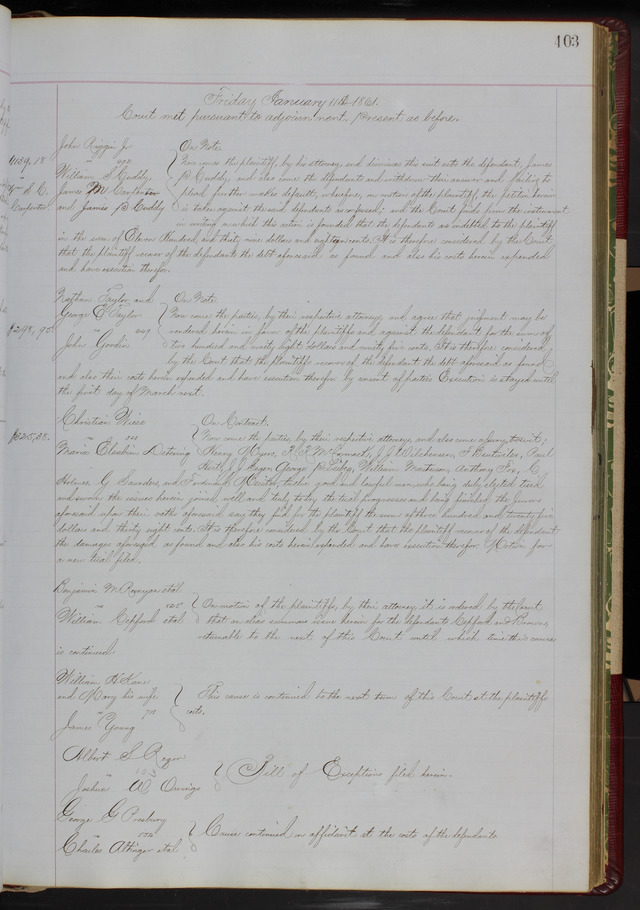 403
Friday January 11th 1861.
Court met pursuant to adjournment. Present as before.
John Riggin Jr
On Note.
William S Cuddy
James M Carpenter
and James B Cuddy
Now comes the plaintiff by his attorney, and dismisses this suit as to the defendant, James
B Cuddy; and also come the defendants and withdraw their answer and failing to
plead further make default, wherefore, on motion of the plaintiff, the petition herein
is taken against the said defendants as confessed; and the Court finds from the instrument
in writing on which this action is founded that the defendants are indebted to the plaintiff
in the sum of Eleven Hundred and thirty nine dollars and eighteen cents. It is therefore considered by the Court
that the plaintiff recover of the defendants the debt aforesaid as found and also his costs herein expended
and have execution therefor.
$298,95
Nathan Taylor and
George E Taylor
John Goodin
On Note
Now come the parties, by their respective attorneys, and agree that judgment may be
rendered herein in favor of the plaintiffs and against the defendant for the sum of
two hundred and ninety eight dollars and ninety five cents. It is therefore considered
by the Court that the plaintiffs recover of the defendant the debt aforesaid as found
and also their costs herein expended and have execution therefor by consent of parties Execution is stayed until
the first day of March next.
$325,38.
Christian Wiese
On Contract.
Now come the parties, by their respective attorneys, and also come a jury, to wit;
Henry Myers,
George
William
Anthony
G Saunders, and Ferdinand
twelve good and lawful men, who being duly elected tried
and sworn the issues herein joined, well and truly to try, the trial progresses and being finished the jurors
aforesaid upon their oaths aforesaid say they find for the plaintiff the sum of three hundred and twenty five
dollars and thirty eight cents. It is therefore considered by the Court that the plaintiff recover of the defendant
the damages aforesaid as found and also his costs herein expended and have execution therefor. Motion for
a new trial filed.
Benjamin M Runyan et al
William Cepford et al
On motion of the plaintiffs, by their attorney it is ordered by the Court
that an alias summons issue herein for the defendants Cepford and
returnable to the next of this Court until which time this cause
is continued.
William H Kane
and Mary his wife
James Young
This cause is continued to the next term of this Court at the plaintiffs
costs.
Albert S Rogers
193
Joshua W Owings
Bill of Exceptions filed herein.
George G Presbury
Charles Altinger et al
Cause continued on affidavit at the costs of the defendants